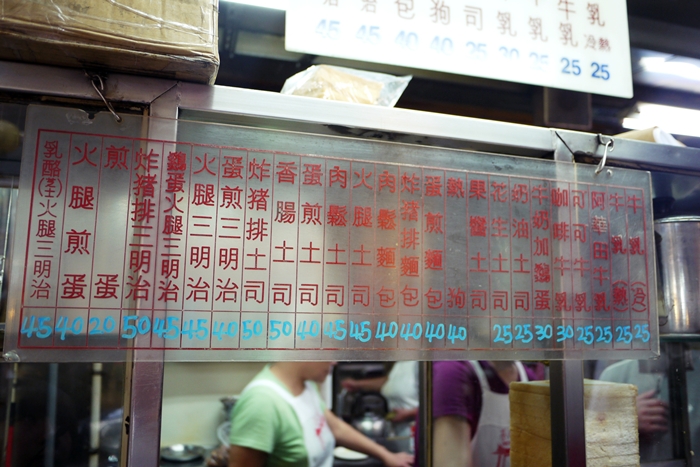 牛乳(冷) 25
牛乳(熱) 25
阿華田牛乳 25
可可牛乳 25
咖啡牛乳 30
牛奶加鷄蛋 30
奶油土司 25
花生土司 25
果醬土司
熱狗 40
蛋煎麵包 40
炸猪排麵包 40
肉鬆麵包 40
火腿土司 45
肉鬆土司 45
蛋煎土司 40
香腸土司 50
炸猪排土司 50
蛋煎三明治 40
火腿三明治 45
鷄蛋火腿三明治 45
炸猪排三明治 50
煎蛋 20
火腿煎蛋 40
乳酪火腿三明治 45